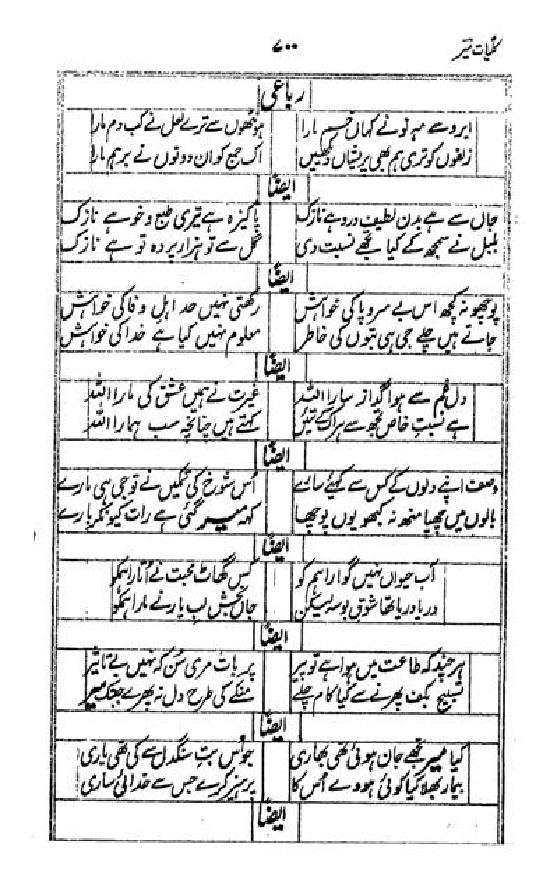 کلیات میر
۷۰۰
رباعی
ابرو سے مہ نو نے کہاں خم مارا ہونٹھوں سے ترے لعل نے کب دم مارا
زلفوں کو تری ہم بھی پریشاں دیکھیں اک جمع کو ان دونوں نے برہم مارا
ایضاً
جاں سے ہے بدن لطیف و رو ہے نازک پاکیزہ ہے تیری طبع و خو ہے نازک
بلبل نے سمجھ کے کیا تجھے نسبت دی گل سے تو ہزار پردہ تو ہے نازک
ایضاً
پوچھو نہ کچھ اس بے سروپا کی خواہش رکھتی نہیں حد اہل وفا کی خواہش
جاتے ہیں چلے جی ہی بتوں کی خاطر معلوم نہیں کیا ہے خدا کی خواہش
ایضاً
دل غم سے ہوا گداز سارا اللہ غیرت نے ہمیں عشق کی مارا اللہ
ہے نسبت خاص تجھ سے ہر اک کے تئیں کہتے ہیں چنانچہ سب ہمارا اللہ
ایضاً
وصف اپنے دنوں کے کس سے کہیے سارے اس شوخ کی تمکیں نے تو جی ہی مارے
بالوں میں چھپا منھ نہ کبھو یوں پوچھا کہہ میر گئی ہے رات کیونکر بارے
ایضاً
آب حیواں نہیں گوارا ہم کو کس گھاٹ محبت نے اتارا ہم کو
دریا دریا تھا شوق بوسہ لیکن جاں بخش لب یار نے مارا ہم کو
ایضاً
ہر چند کہ طاعت میں ہوا ہے تو پیر پر بات مری سن کہ نہیں بے تاثیر
تسبیح بکف پھرنے سے کیا کام چلے منکے کی طرح دل نہ پھرے جب تک میر
ایضاً
کیا میر تجھے جان ہوئی تھی بھاری جو اس بت سنگدل سے کی تھی یاری
بیمار بھلا کیا کوئی ہووے اس کا پرہیز کرے جس سے خدائی ساری
ایضاً